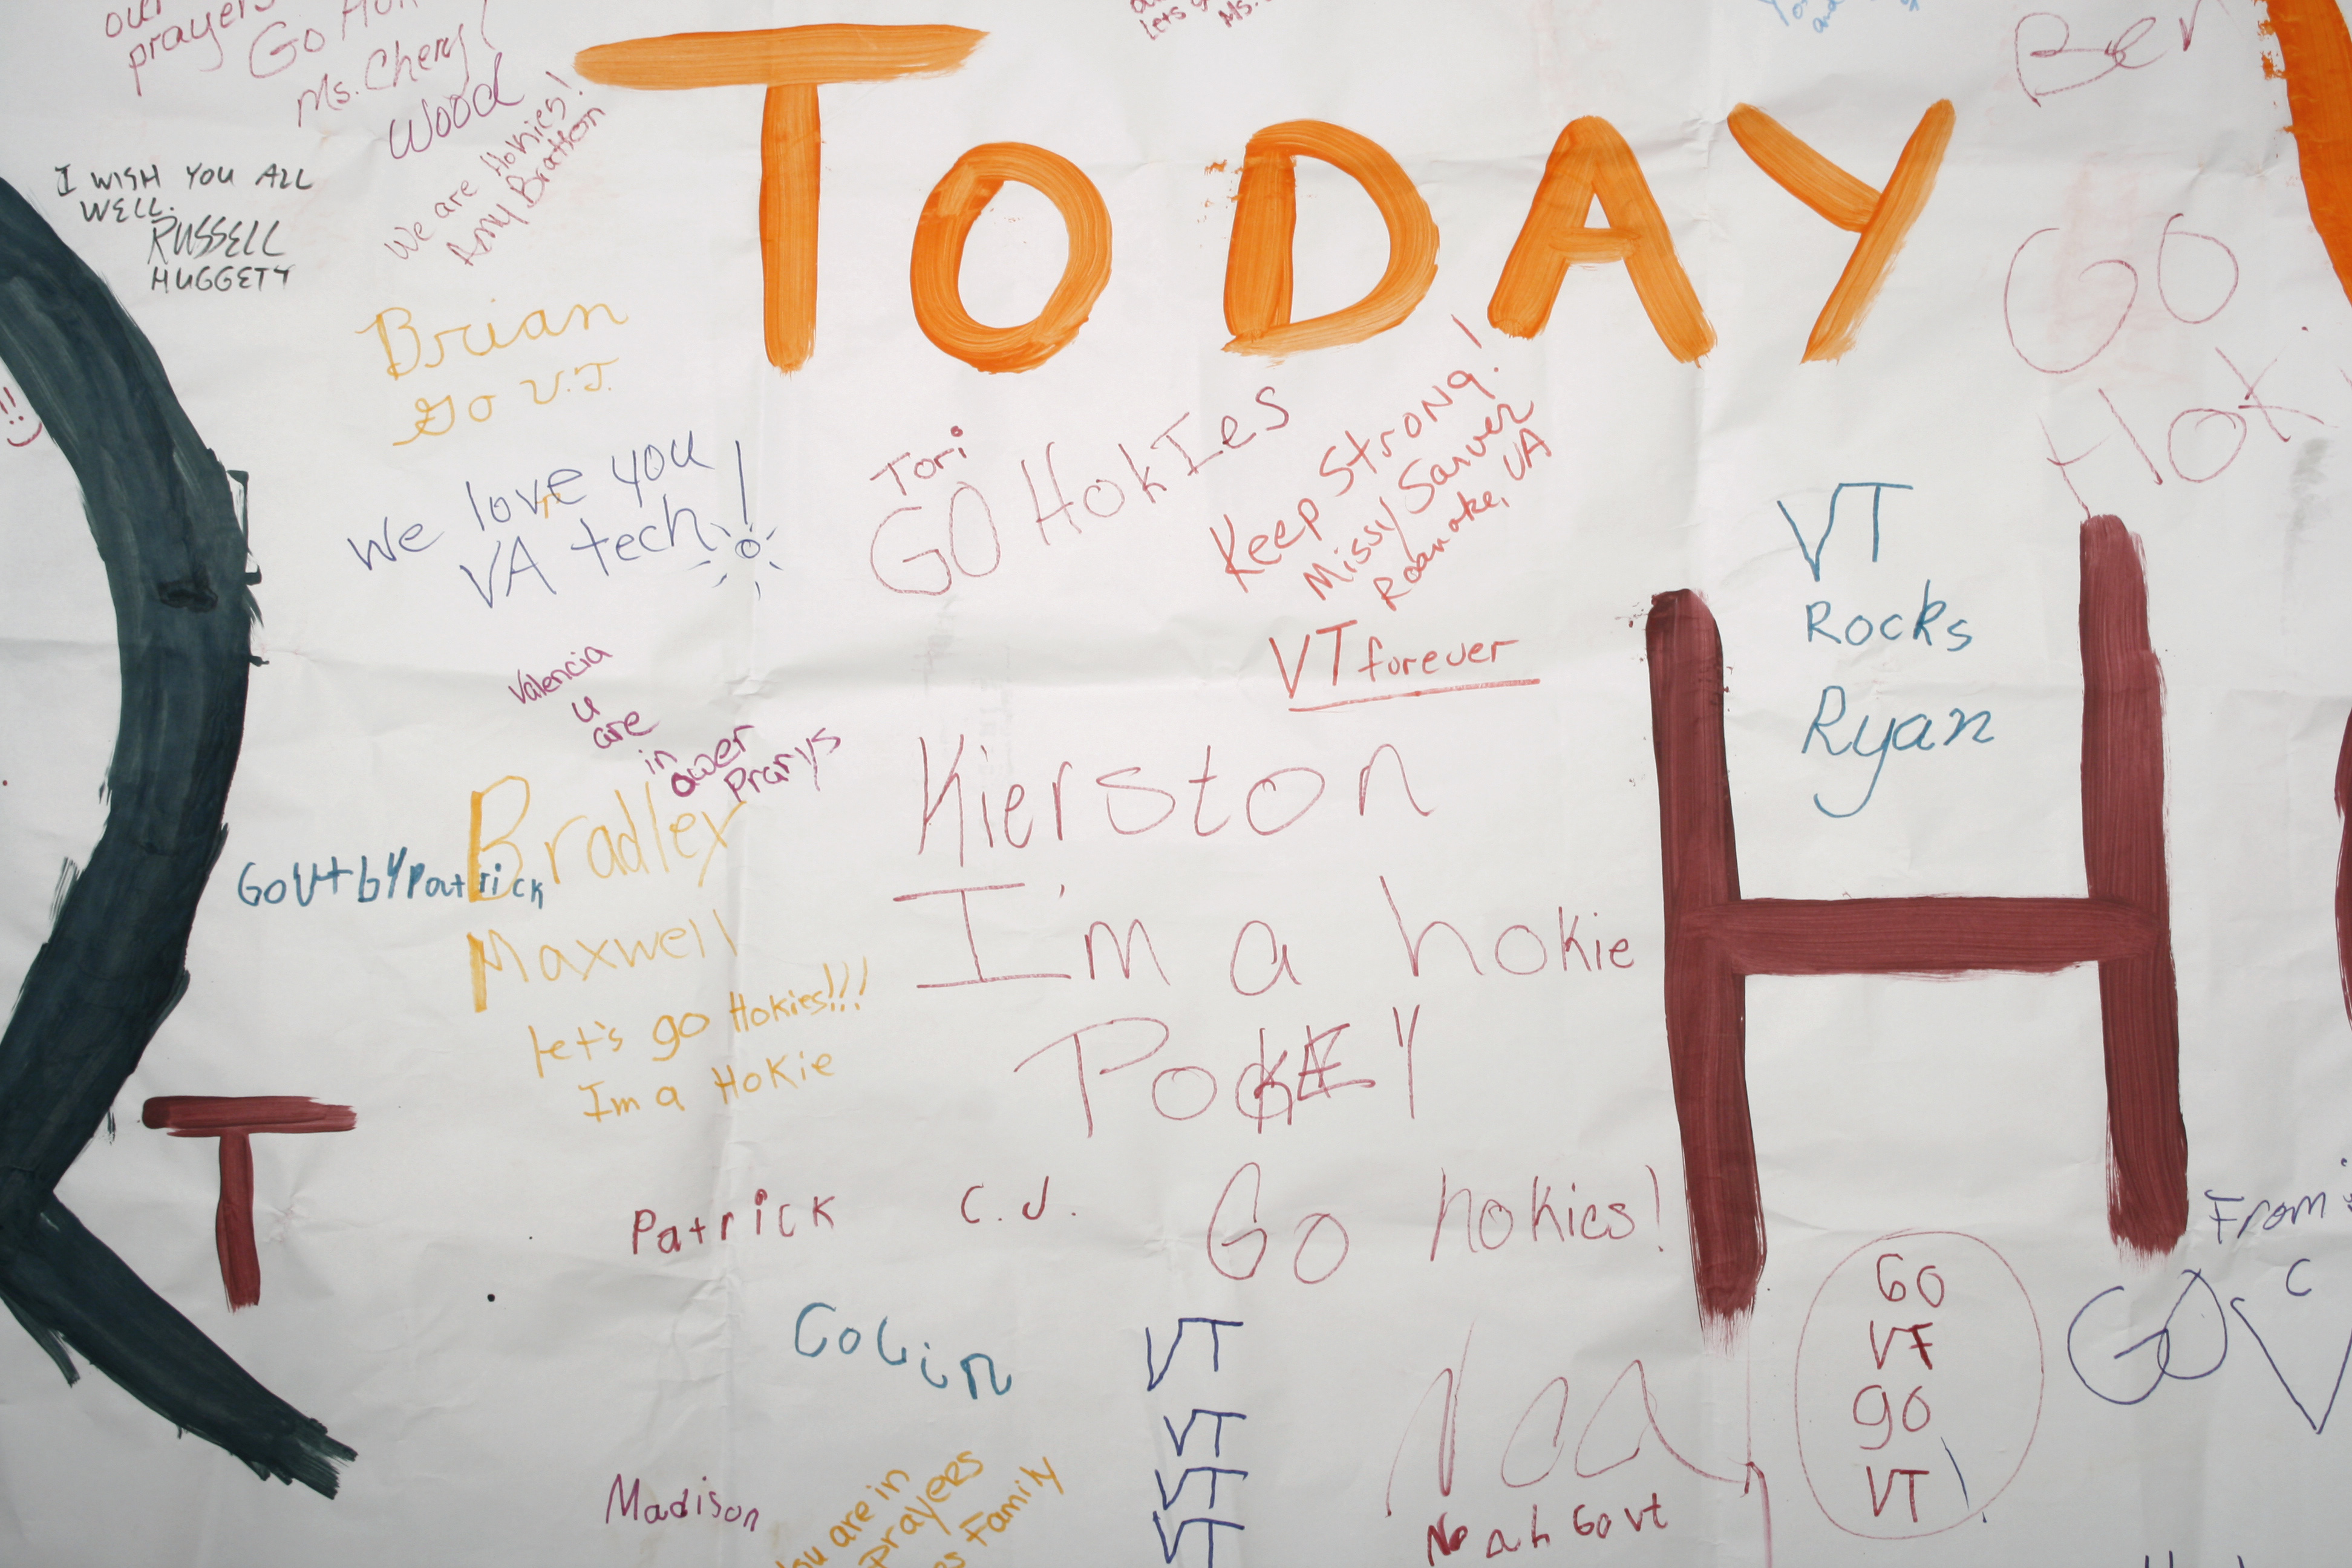 our
prayers
Go
Ms. Cheryl
Wood
Lets
Ms.
and
Ben
TODAY
I WISH YOU ALL
WELL.
RUSSELL
HUGGETT
We are Hokies!
Amy Bratton
Brian
Go V.T.
GO
HOK
We love you
VA tech!
Tori
GO HokIes
Keep StroNg!
Missy Sarver
Roanoke, VA
VT forever
VT
Rocks
Ryan
H
Valencia
u
are
in
ower
Prarys
Kierston
I'm a hokie
POKEY
Bradley
Maxwell
Go Vt bY Patrick
let's go Hokies!!!
Im a Hokie
T
Patrick
C.J.
Go hokies!
From
C
GO V
Colin
VT
VT
VT
VT
Noa
Noah Go vt
GO
VT
go
VT
Madison
You are in
prayers
Family